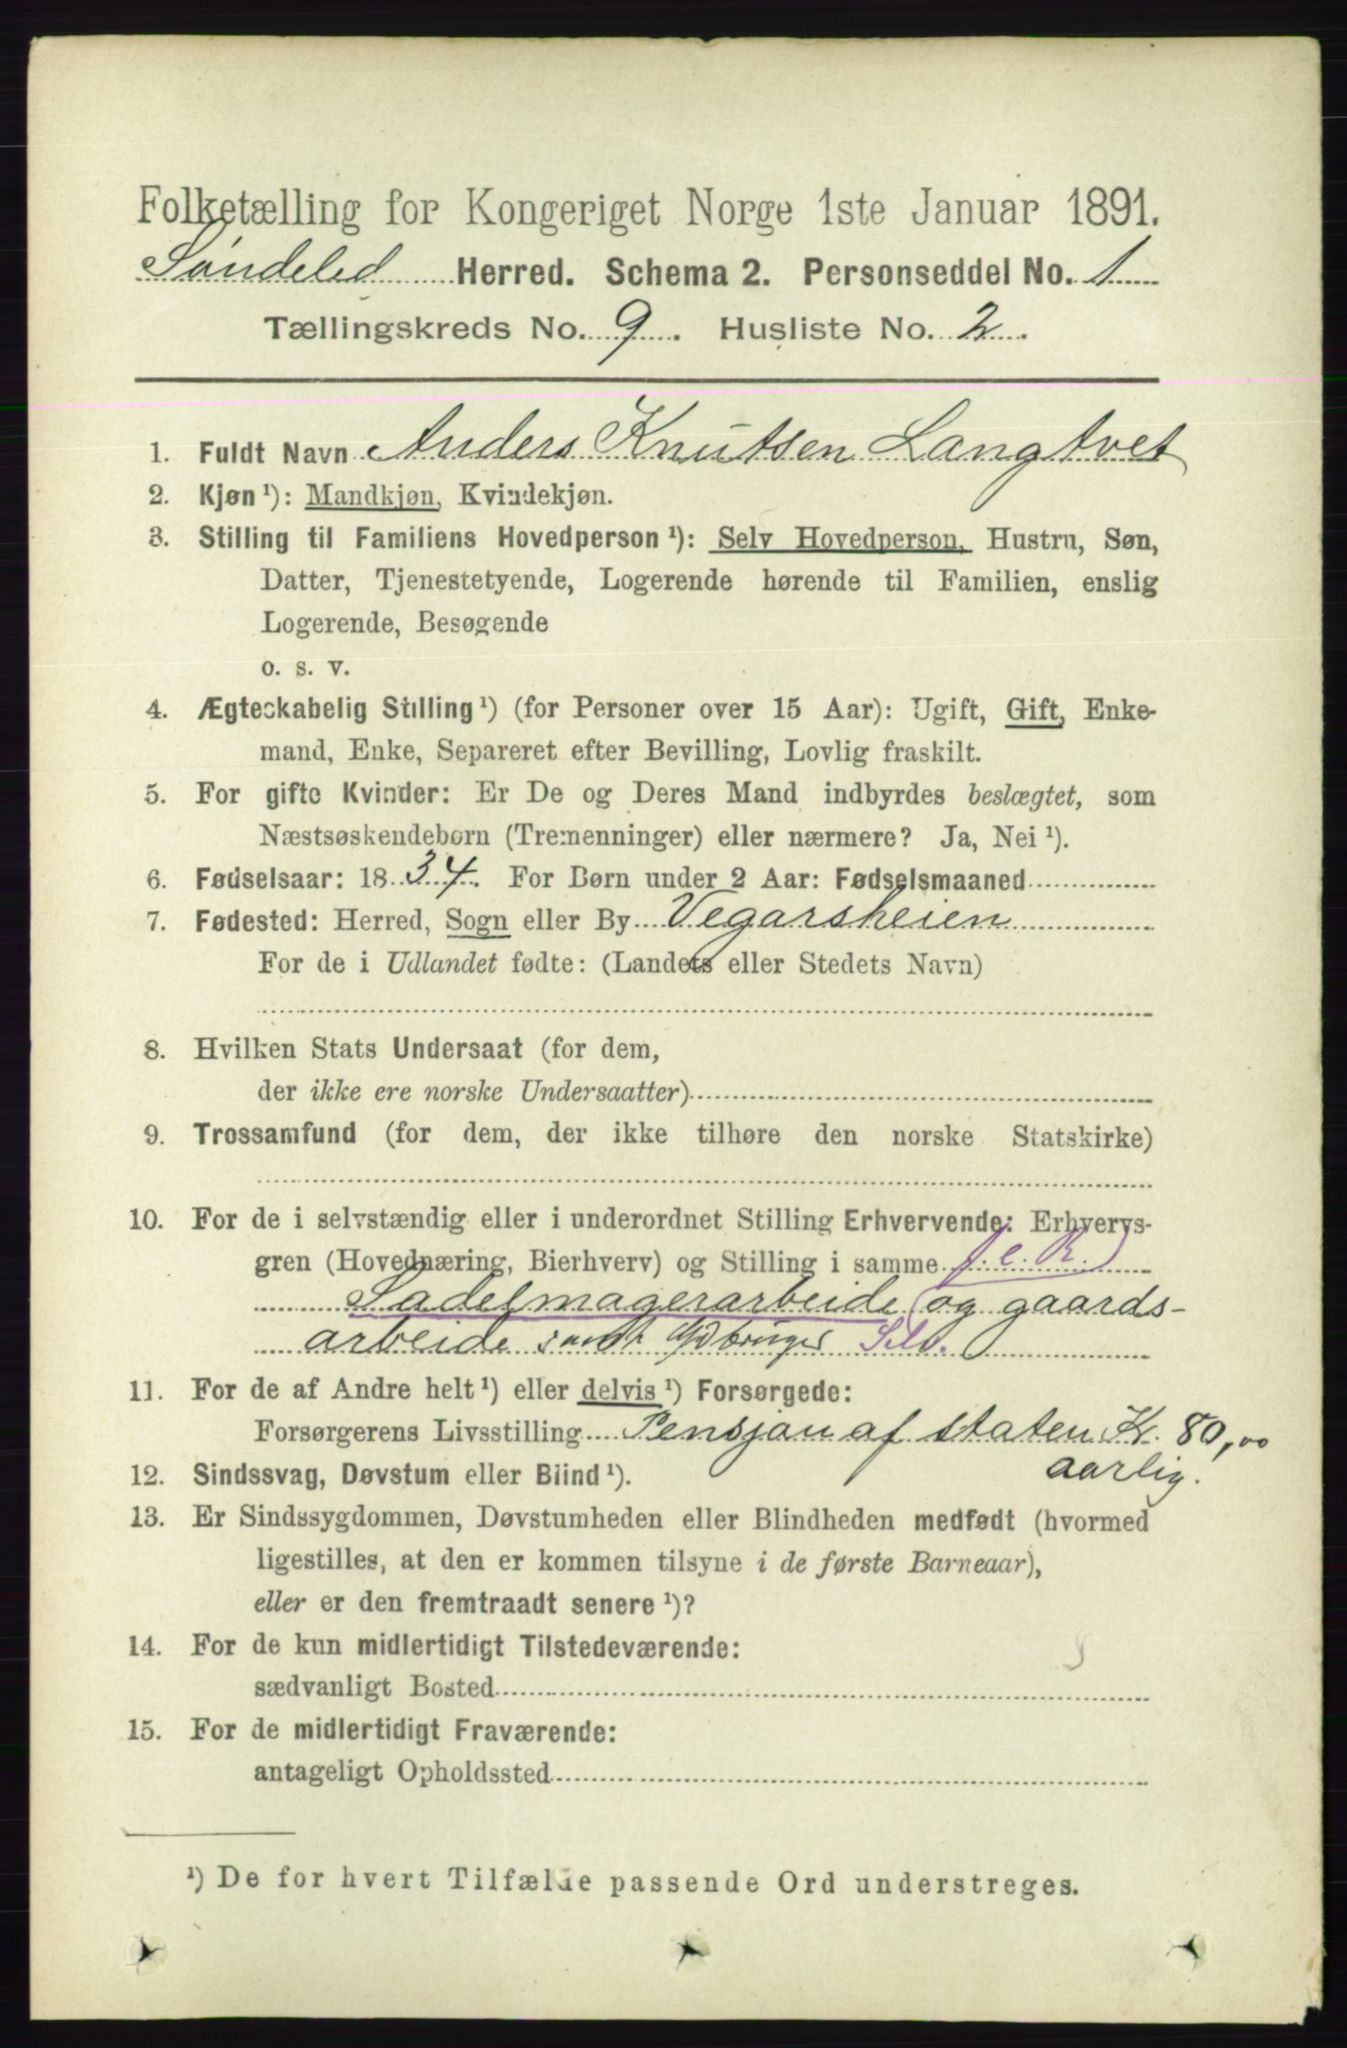 Folketælling for Kongeriget Norge 1ste Januar 1891.
Søndeled Herred. Schema 2. Personseddel No. 1
Tællingskreds No. 9. Husliste No. 2.
1. Fuldt Navn Anders Knutsen Langtvet
2. Kjøn ¹): Mandkjøn, Kvindekjøn.
3. Stilling til Familiens Hovedperson ¹): Selv Hovedperson, Hustru, Søn,
Datter, Tjenestetyende, Logerende hørende til Familien, enslig
Logerende, Besøgende
o. s. v.
4. Ægteskabelig Stilling ¹) (for Personer over 15 Aar): Ugift, Gift, Enke-
mand, Enke, Separeret efter Bevilling, Lovlig fraskilt.
5. For gifte Kvinder: Er De og Deres Mand indbyrdes beslægtet, som
Næstsøskendebørn (Tremenninger) eller nærmere? Ja, Nei ¹).
6. Fødselsaar: 1834. For Børn under 2 Aar: Fødselsmaaned
7. Fødested: Herred, Sogn eller By Vegarsheien
For de i Udlandet fødte: (Landets eller Stedets Navn)
8. Hvilken Stats Undersaat (for dem,
der ikke ere norske Undersaatter)
9. Trossamfund (for dem, der ikke tilhøre den norske Statskirke)
10. For de i selvstændig eller i underordnet Stilling Erhvervende: Erhvervs-
gren (Hovednæring, Bierhverv) og Stilling i samme
Sadelmagerarbeide og gaards-
arbeide samt Gdbruger Selv.
11. For de af Andre helt ¹) eller delvis ¹) Forsørgede:
Forsørgerens Livsstilling Pensjon af staten Kr. 80,00
aarlig.
12. Sindssvag, Døvstum eller Blind ¹).
13. Er Sindssygdommen, Døvstumheden eller Blindheden medfødt (hvormed
ligestilles, at den er kommen tilsyne i de første Barneaar),
eller er den fremtraadt senere ¹)?
14. For de kun midlertidigt Tilstedeværende:
sædvanligt Bosted
15. For de midlertidigt Fraværende:
antageligt Opholdssted
¹) De for hvert Tilfælde passende Ord understreges.